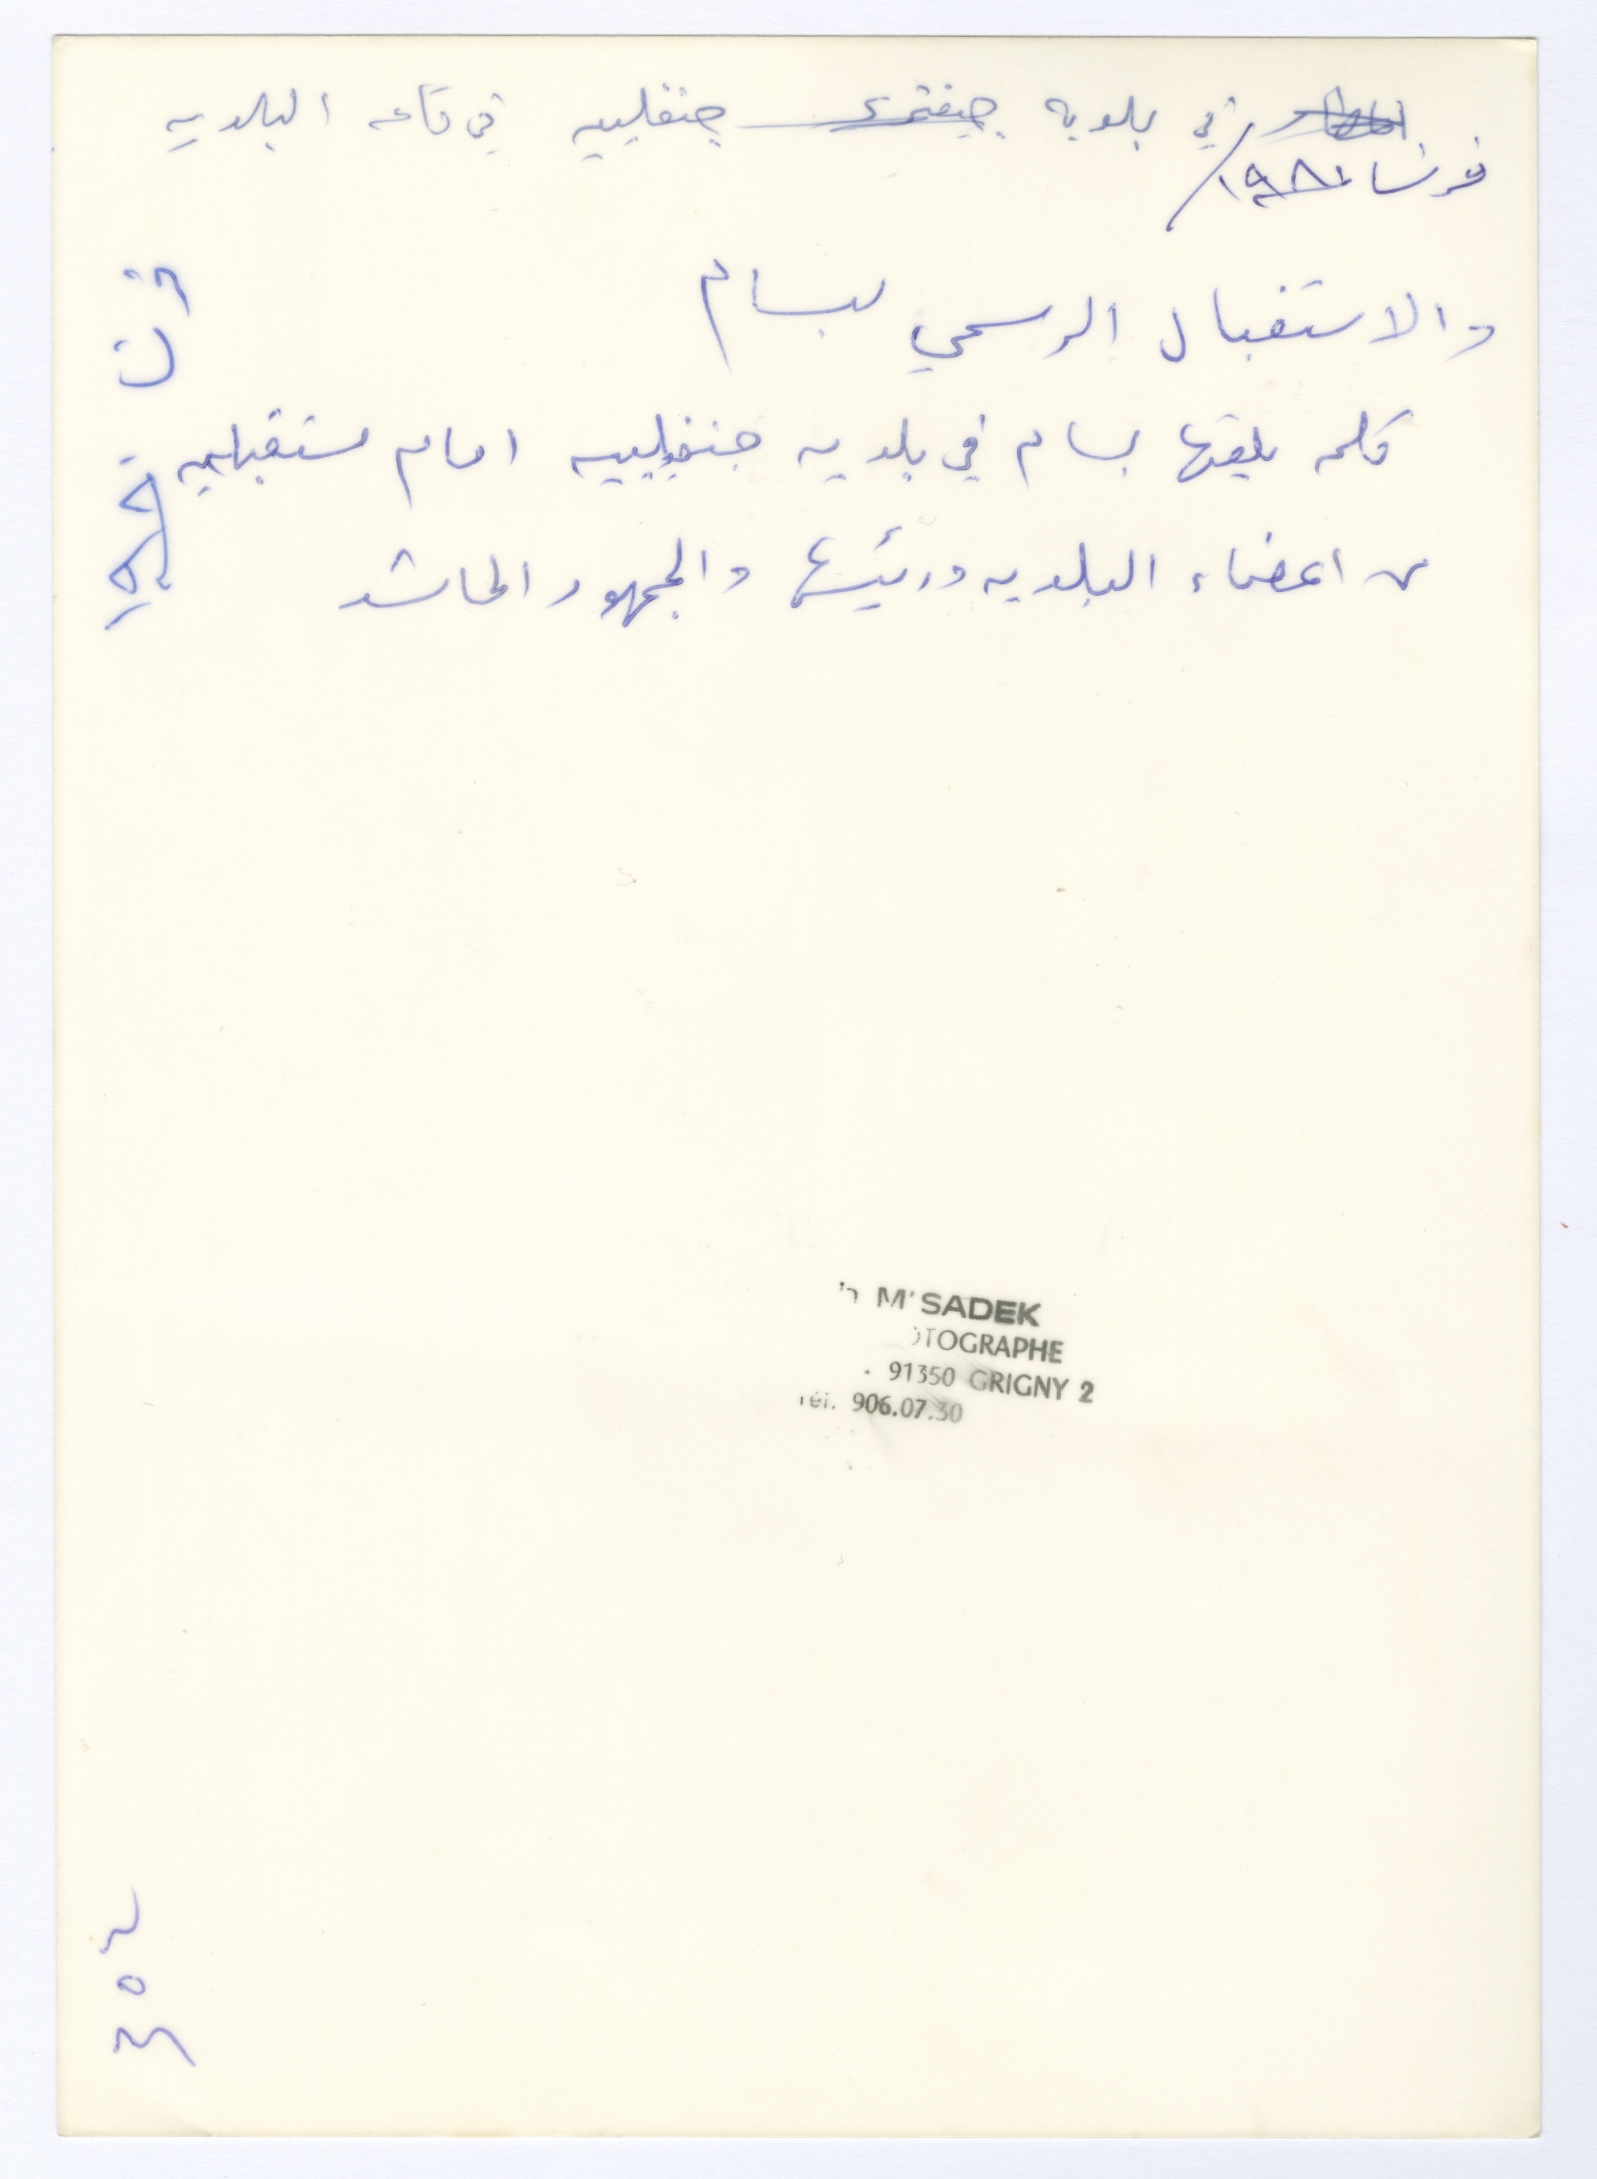 في بلديه جنفلييه في قاعه البلديه
فرنسا ١٩٨١
والاستقبال الرسمي لبسام
كلمه يلقيها بسام في بلديه جنفلييه امام مستقبليه
من اعضاء البلديه ورئيسها والجمهور الحاشد
M' SADEK
OTOGRAPHE
91350 GRIGNY 2
Tél. 906.07.30